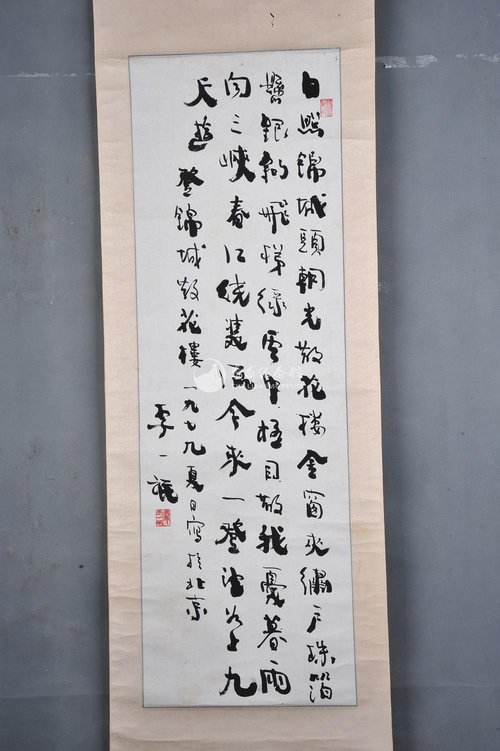 日照锦城頭朝光散花楼金窗夾繡户珠箔
懸銀鈎飛梯绿雲中極目散我憂暮雨
向三峽春江绕雙流今來一登望如上九
天遊 登锦城散花樓 一九七九夏日寫於北京
李一